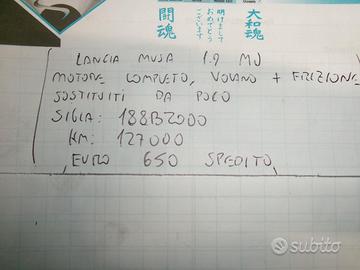 大和魂
明けまして
おめでとう
ございます
闘魂
LANCIA MUSA 1.9 MJ
MOTORE COMPLETO, VOLANO + FRIZIONE
SOSTITUITI DA POCO
SIGLA: 188B2000
KM: 127000
EURO 650 SPEDITO
subito